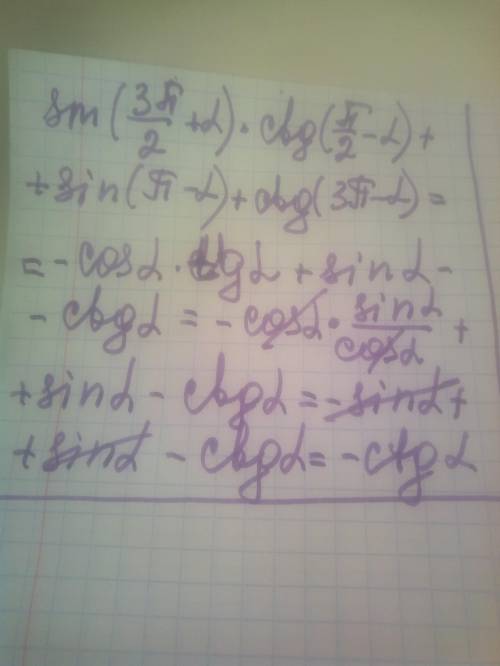 sin(3π/2 + α) · ctg(π/2 - α) +
+ sin(π - α) + ctg(3π - α) =
= - cosα · tgα + sinα -
- ctgα = - cosα · sinα/cosα +
+ sinα - ctgα = - sinα +
+ sinα - ctgα = - ctgα